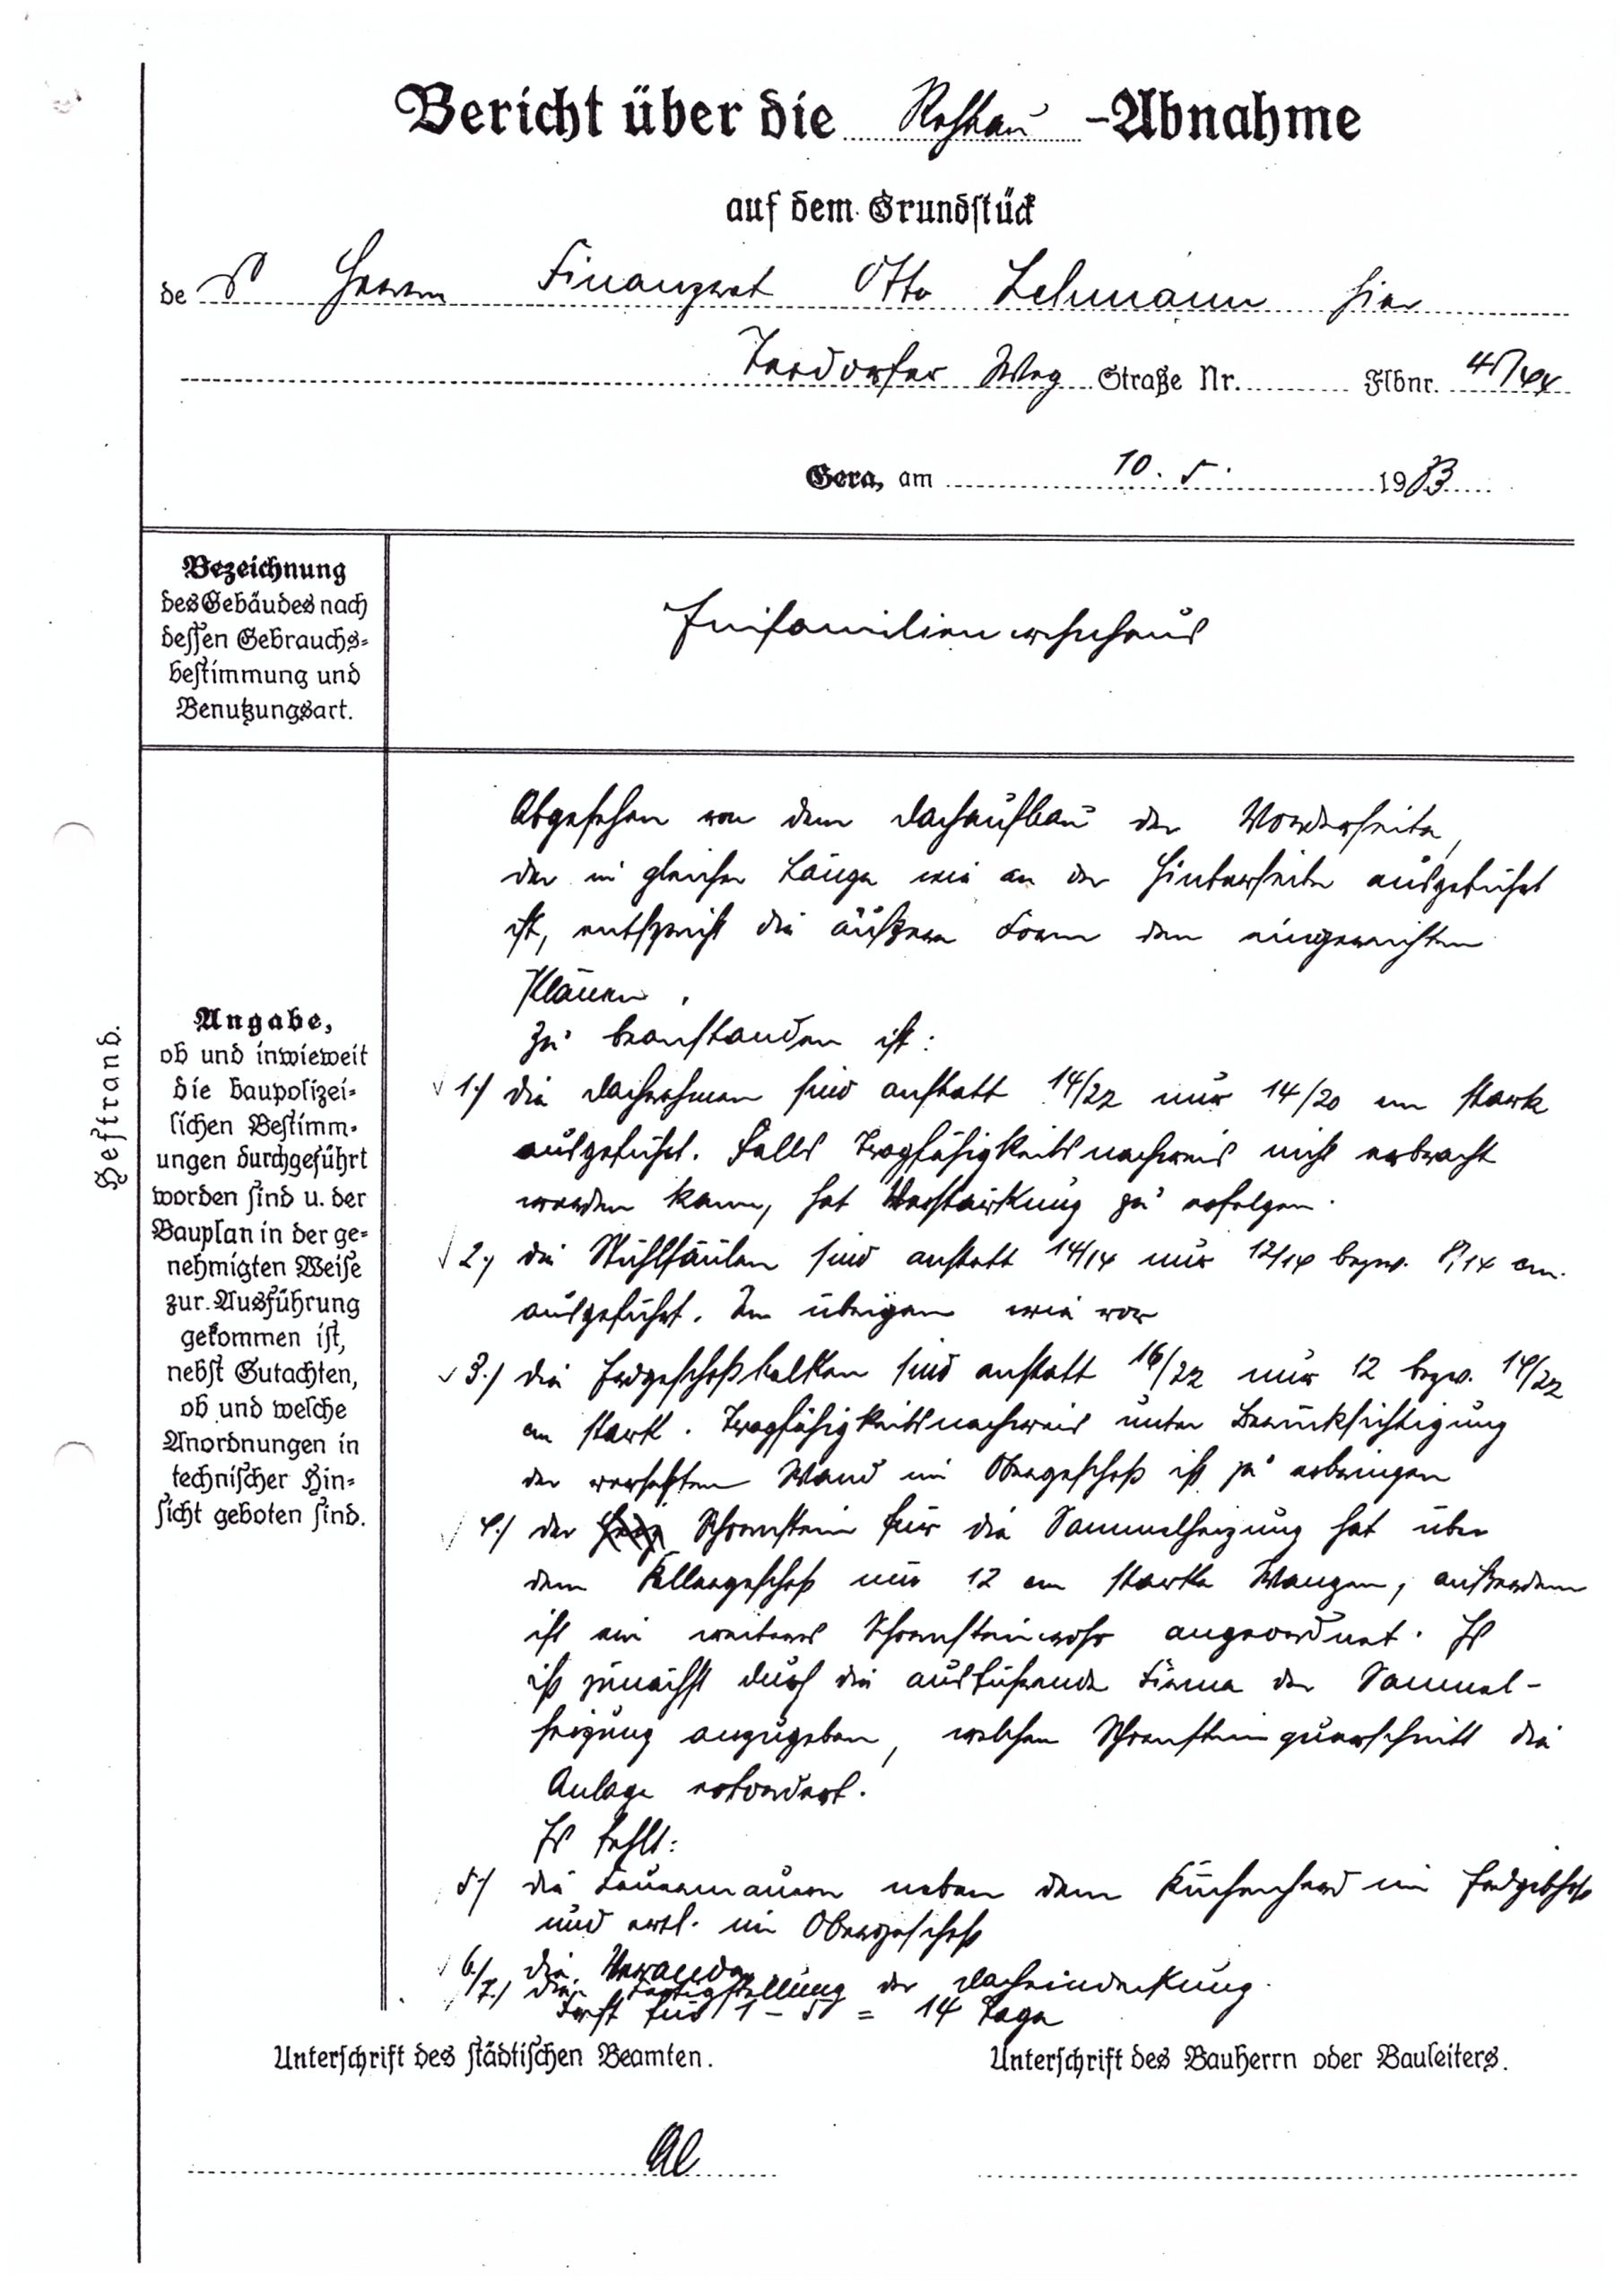 Bericht über die Rohbau -Abnahme
auf dem Grundstück
des Herrn Finanzrat Otto Lehmann hier
Weg Straße Nr. Flbnr.
Gera, am 10. 5. 1933
Bezeichnung
des Gebäudes nach
dessen Gebrauchs-
bestimmung und
Benutzungsart.
Einfamilienwohnhaus
Heftrand.
Angabe,
ob und inwieweit
die baupolizei-
lichen Bestimm-
ungen durchgeführt
worden sind u. der
Bauplan in der ge-
nehmigten Weise
zur Ausführung
gekommen ist,
nebst Gutachten,
ob und welche
Anordnungen in
technischer Hin-
sicht geboten sind.
Abgesehen von dem Dachaufbau der Vorderseite,
der in gleicher Länge wie an der Hinterseite ausgeführt
ist, entspricht die äußere Form den eingereichten
Plänen.
Zu beanstanden ist:
1.) die Dachrahmen sind anstatt 14/22 nur 14/20 cm stark
ausgeführt. Falls Tragfähigkeitsnachweis nicht erbracht
werden kann, hat Verstärkung zu erfolgen.
2.) die Stuhlsäulen sind anstatt 14/14 nur 12/14 bezw. 8/14 cm.
ausgeführt. Im übrigen wie vor
3.) die Erdgeschoßbalken sind anstatt 16/22 nur 12 bezw. 14/22
cm stark. Tragfähigkeitsnachweis unter Berücksichtigung
der versetzten Wand im Obergeschoß ist zu erbringen
4.) der Schornstein für die Sammelheizung hat über
dem Kellergeschoß nur 12 cm starke Wangen, außerdem
ist ein weiteres Schornsteinrohr angeordnet. Es
ist zunächst durch die ausführende Firma der Sammel-
heizung anzugeben, welchen Schornsteinquerschnitt die
Anlage erfordert.
Es fehlt:
5.) die Feuermauern neben dem Küchenherd im Erdgeschoß
und evtl. im Obergeschoß
6.) die Veranda
7.) die Fertigstellung der Dacheindeckung.
Frist für 1 – 5 = 14 Tage
Unterschrift des städtischen Beamten.
Unterschrift des Bauherrn oder Bauleiters.